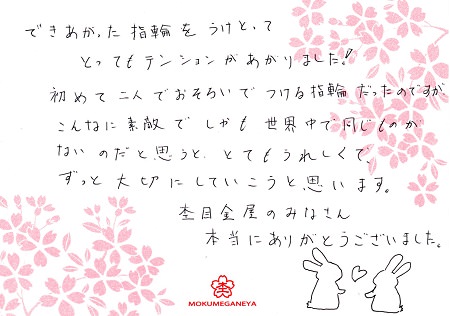 できあがった指輪をうけとって
とってもテンションがあがりました!
初めて二人でおそろいでつける指輪だったのですが
こんなに素敵でしかも世界中で同じものが
ないのだと思うと、とてもうれしくて、
ずっと大切にしていこうと思います。
杢目金屋のみなさん
本当にありがとうございました。
杢
MOKUMEGANEYA